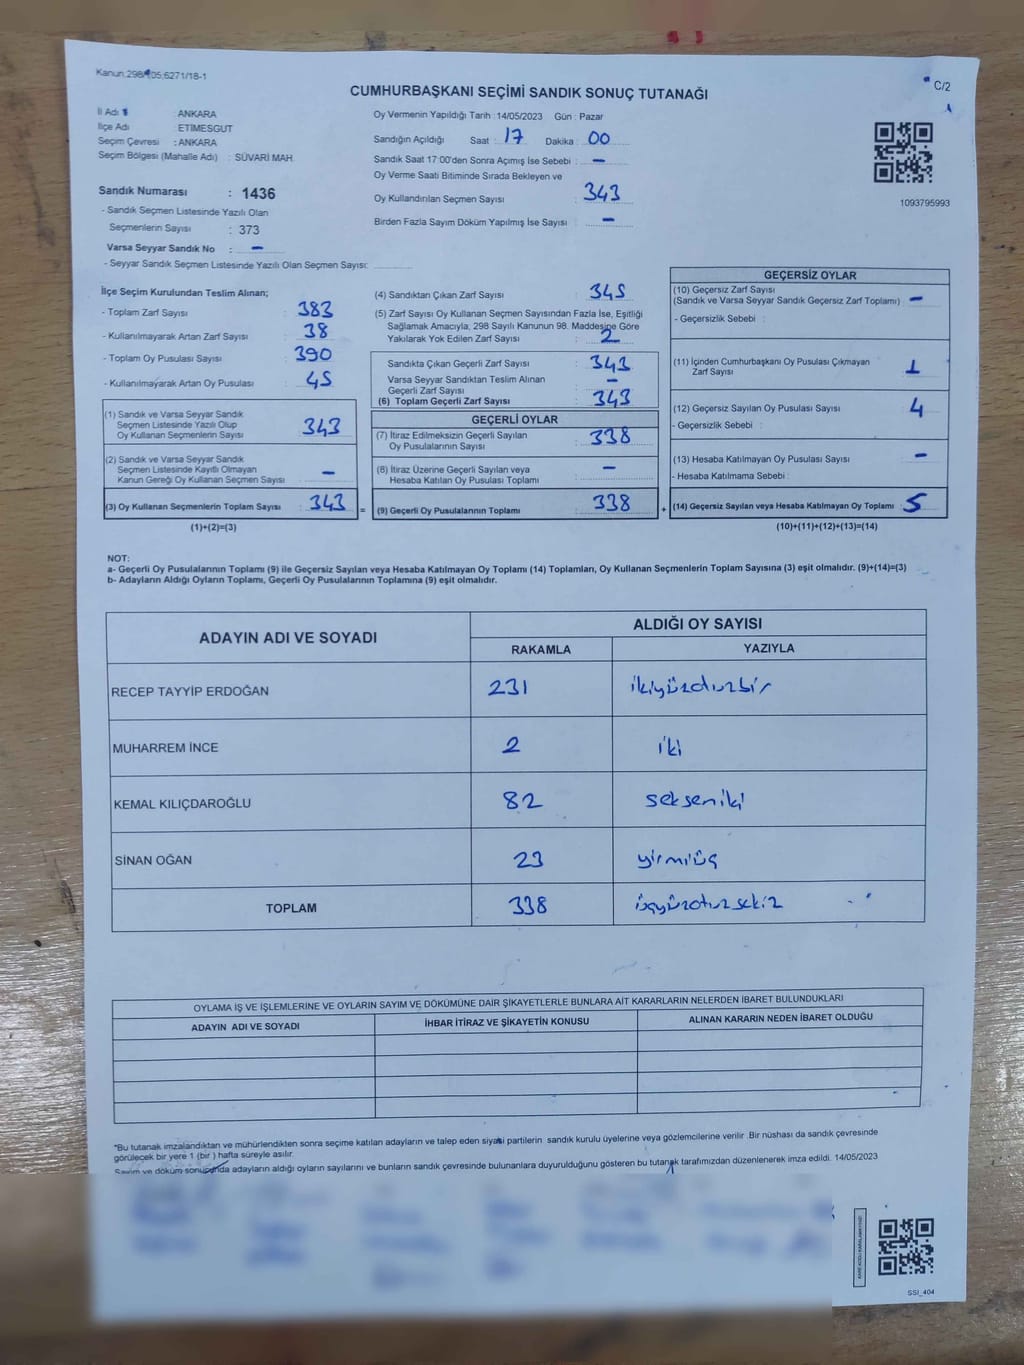 Kanun:298/105;6271/18-1
C/2
CUMHURBAŞKANI SEÇİMİ SANDIK SONUÇ TUTANAĞI
İl Adı : ANKARA
İlçe Adı : ETİMESGUT
Seçim Çevresi : ANKARA
Seçim Bölgesi (Mahalle Adı) : SÜVARİ MAH.
Sandık Numarası : 1436
- Sandık Seçmen Listesinde Yazılı Olan
Seçmenlerin Sayısı : 373
Varsa Seyyar Sandık No : –
- Seyyar Sandık Seçmen Listesinde Yazılı Olan Seçmen Sayısı:
Oy Vermenin Yapıldığı Tarih : 14/05/2023 Gün : Pazar
Sandığın Açıldığı Saat : 17 Dakika : 00
Sandık Saat 17:00'den Sonra Açımış İse Sebebi : –
Oy Verme Saati Bitiminde Sırada Bekleyen ve
Oy Kullandırılan Seçmen Sayısı : 343
Birden Fazla Sayım Döküm Yapılmış İse Sayısı : –
1093795993
İlçe Seçim Kurulundan Teslim Alınan;
- Toplam Zarf Sayısı : 383
- Kullanılmayarak Artan Zarf Sayısı : 38
- Toplam Oy Pusulası Sayısı : 390
- Kullanılmayarak Artan Oy Pusulası : 45
(1) Sandık ve Varsa Seyyar Sandık
Seçmen Listesinde Yazılı Olup
Oy Kullanan Seçmenlerin Sayısı : 343
(2) Sandık ve Varsa Seyyar Sandık
Seçmen Listesinde Kayıtlı Olmayan
Kanun Gereği Oy Kullanan Seçmen Sayısı : –
(3) Oy Kullanan Seçmenlerin Toplam Sayısı : 343 =
(1)+(2)=(3)
(4) Sandıktan Çıkan Zarf Sayısı : 345
(5) Zarf Sayısı Oy Kullanan Seçmen Sayısından Fazla İse, Eşitliği
Sağlamak Amacıyla; 298 Sayılı Kanunun 98. Maddesine Göre
Yakılarak Yok Edilen Zarf Sayısı : 2
Sandıkta Çıkan Geçerli Zarf Sayısı : 343
Varsa Seyyar Sandıktan Teslim Alınan
Geçerli Zarf Sayısı : –
(6) Toplam Geçerli Zarf Sayısı : 343
GEÇERLİ OYLAR
(7) İtiraz Edilmeksizin Geçerli Sayılan
Oy Pusulalarının Sayısı : 338
(8) İtiraz Üzerine Geçerli Sayılan veya
Hesaba Katılan Oy Pusulası Toplamı : –
(9) Geçerli Oy Pusulalarının Toplamı : 338 +
GEÇERSİZ OYLAR
(10) Geçersiz Zarf Sayısı
(Sandık ve Varsa Seyyar Sandık Geçersiz Zarf Toplamı) : –
- Geçersizlik Sebebi :
(11) İçinden Cumhurbaşkanı Oy Pusulası Çıkmayan
Zarf Sayısı : 1
(12) Geçersiz Sayılan Oy Pusulası Sayısı : 4
- Geçersizlik Sebebi :
(13) Hesaba Katılmayan Oy Pusulası Sayısı : –
- Hesaba Katılmama Sebebi :
(14) Geçersiz Sayılan veya Hesaba Katılmayan Oy Toplamı : 5
(10)+(11)+(12)+(13)=(14)
NOT:
a- Geçerli Oy Pusulalarının Toplamı (9) ile Geçersiz Sayılan veya Hesaba Katılmayan Oy Toplamı (14) Toplamları, Oy Kullanan Seçmenlerin Toplam Sayısına (3) eşit olmalıdır. (9)+(14)=(3)
b- Adayların Aldığı Oyların Toplamı, Geçerli Oy Pusulalarının Toplamına (9) eşit olmalıdır.
ADAYIN ADI VE SOYADI
ALDIĞI OY SAYISI
RAKAMLA YAZIYLA
RECEP TAYYİP ERDOĞAN 231 ikiyüzotuzbir
MUHARREM İNCE 2 iki
KEMAL KILIÇDAROĞLU 82 sekseniki
SİNAN OĞAN 23 yirmiüç
TOPLAM 338 üçyüzotuzsekiz
OYLAMA İŞ VE İŞLEMLERİNE VE OYLARIN SAYIM VE DÖKÜMÜNE DAİR ŞİKAYETLERLE BUNLARA AİT KARARLARIN NELERDEN İBARET BULUNDUKLARI
ADAYIN ADI VE SOYADI İHBAR İTİRAZ VE ŞİKAYETİN KONUSU ALINAN KARARIN NEDEN İBARET OLDUĞU
*Bu tutanak imzalandıktan ve mühürlendikten sonra seçime katılan adayların ve talep eden siyasi partilerin sandık kurulu üyelerine veya gözlemcilerine verilir .Bir nüshası da sandık çevresinde
görülecek bir yere 1 (bir ) hafta süreyle asılır.
Sayım ve döküm sonucunda adayların aldığı oyların sayılarını ve bunların sandık çevresinde bulunanlara duyurulduğunu gösteren bu tutanak tarafımızdan düzenlenerek imza edildi. 14/05/2023
SSI_404